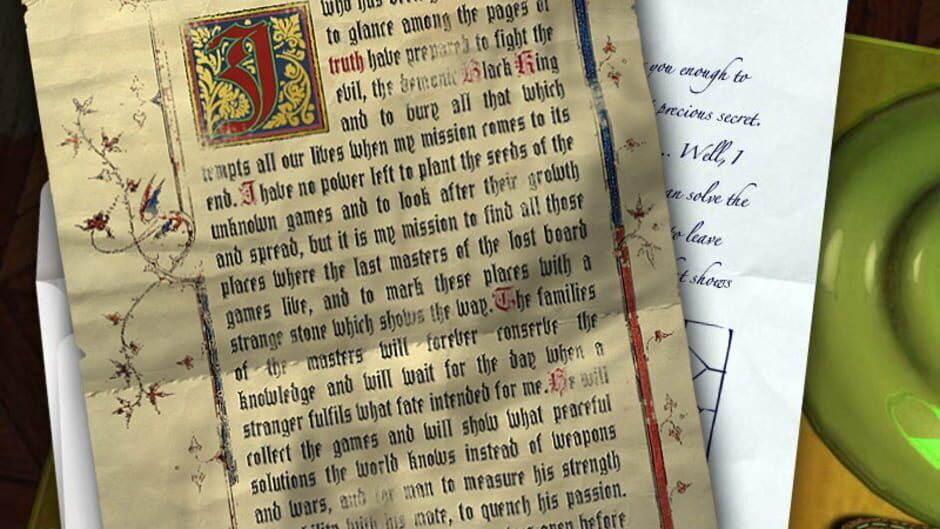 who has been
to glance among the pages of
truth have prepared to fight the
evil, the demonic Black King
and to bury all that which
tempts all our lives when my mission comes to its
end. I have no power left to plant the seeds of the
unknown games and to look after their growth
and spread, but it is my mission to find all those
places where the last masters of the lost board
games live, and to mark these places with a
strange stone which shows the way. The families
of the masters will forever conserve the
knowledge and will wait for the day when a
stranger fulfils what fate intended for me. He will
collect the games and will show what peaceful
solutions the world knows instead of weapons
and wars, and for man to measure his strength
with his mate, to quench his passion.
open before
you enough to
precious secret.
... Well, I
solve the
to leave
shows